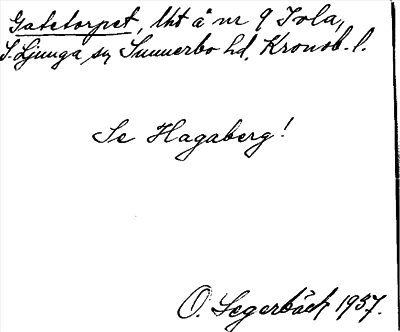 Gatetorpet, lht å nr 9 Tvla,
S. Ljunga sn, Sunnerbo hd, Kronob. l.
Se Hagaberg!
O. Segerbäck 1937.